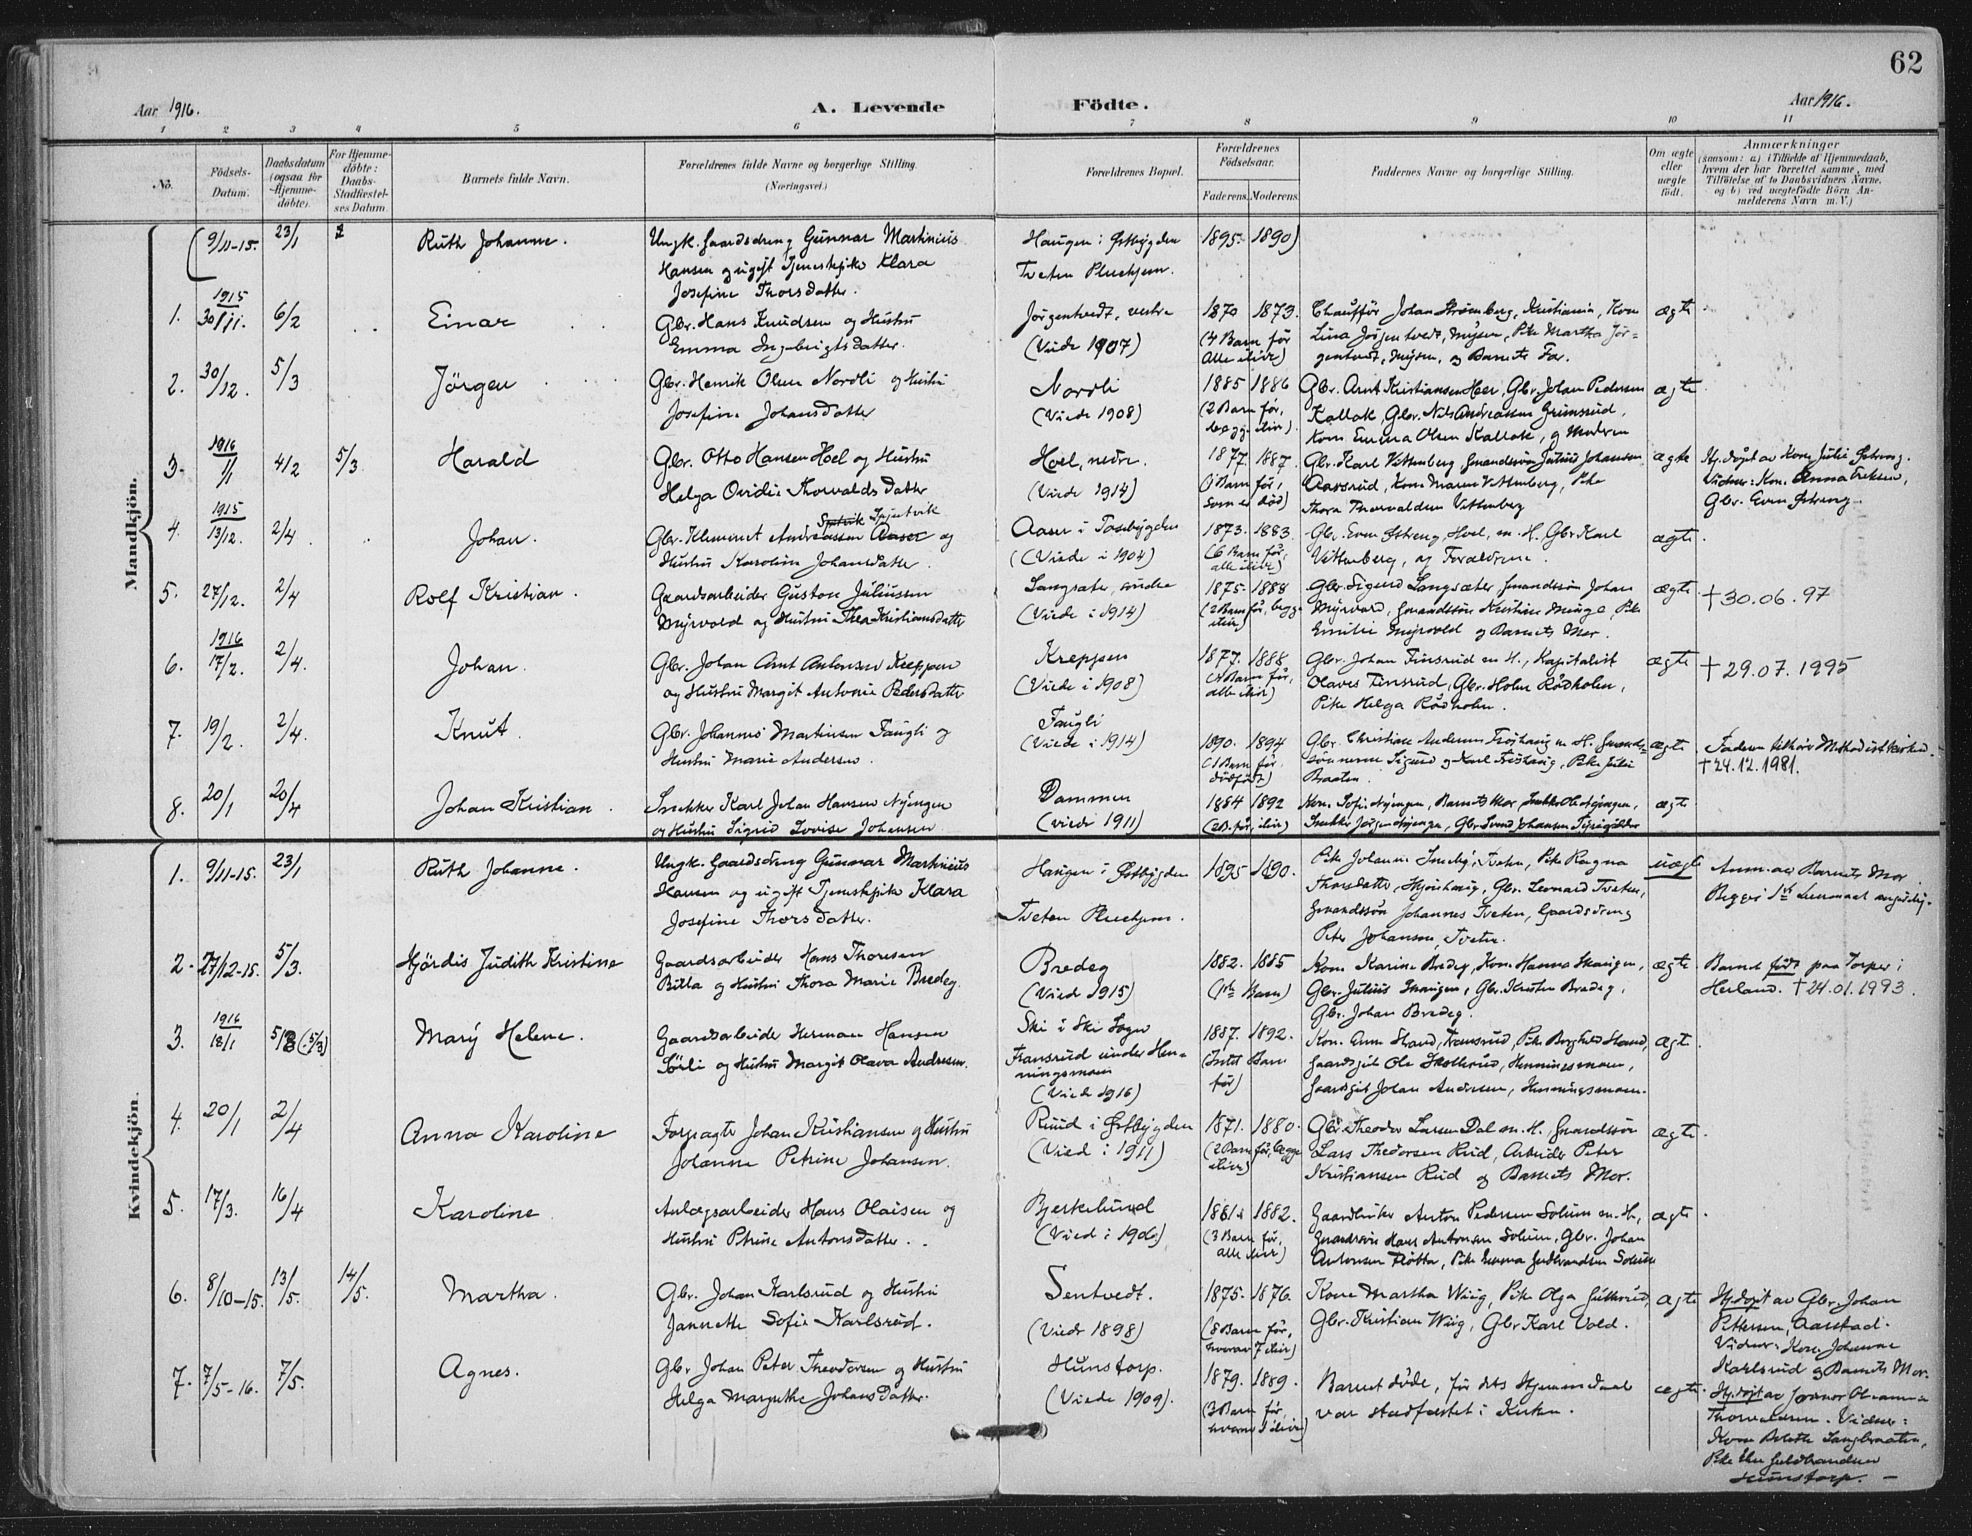 62
Aar 1916. A. Levende Födte. Aar 1916.
1 2 3 4 5 6 7 8 9 10 11
No.
Födsels-
Datum.
Daabsdatum
(ogsaa for
Hjemme-
döbte).
For Hjemme-
döbte:
Daabs-
Stadfæstel-
ses Datum.
Barnets fulde Navn.
Forældrenes fulde Navne og borgerlige Stilling.
(Næringsvei.)
Forældrenes Bopæl.
Forældrenes
Födselsaar.
Faderens. Moderens.
Faddernes Navne og borgerlige Stilling.
Om ægte
eller
uægte
födt.
Anmærkninger
(saasom: a) i Tilfælde af Hjemmedaab,
hvem der har forrettet samme, med
Tilföielse af to Daabsvidners Navne,
og b) ved uægtefödte Börn An-
melderens Navn m. V.)
Mandkjön.
(9/11-15. 23/1 Ruth Johanne. Ungk. Gaardsdreng Gunnar Martinius Haugen i Østbygden 1895- 1890)
Hansen og ugift Tjenestepike Klara Tveten Pluehjem.
Josefine Thorsdatter.
1. 1915 30/11. 6/2 Einar Gbr. Hans Knudsen og Hustru Jørgentvedt, vestre 1870 1873. Chauffør Johan Strømberg, Kristiania, Kone ægte
Emma Ingebrigtsdatter. (Viede 1907) (4 Barn før Lina Jørgentvedt, Mysen, Pike Martha Jør-
alle ilive) gentvedt, Mysen, og Barnets Far.
2. 30/12. 5/3 Jörgen Gbr. Henrik Olsen Nordli og Hustru Nordli 1885 1886 Gbr. Arnt Kristiansen Heer, Gbr. Johan Pedersen ægte
Josefine Johansdatter (Viede 1908) (2 Barn før, Kallak, Gbr. Nils Andreassen Grimsrud,
begge ilive). Kone Emma Olsen Kallak, og Modren
3. 1916 1/1 4/2 5/3. Harald Gbr. Otto Hansen Hoel og Hustru Hoel, nedre. 1877. 1887. Gbr. Karl Vittenberg Gmandssøn Julius Johansen ægte Hj.døpt av Kone Julie Østreng.
Helga Ovidia Thorvaldsdatter (Viede 1914) (1 Barn før, Aasrud, Kone Maren Vittenberg, Pike Vidner: Kone Anna Eriksen,
som er død) Thora Thorvaldsen Vittenberg Gbr. Even Østreng.
4. 1915 13/12. 2/4 Johan. Gbr. Klement Andreassen Aaser Spjutvik og Aaser i Tosebygden 1873. 1883. Gbr. Even Østreng, Hoel, m. H. Gbr Karl ægte
Hustru Karoline Johansdatter. (Viede i 1904) (6 Barn før, Vittenberg, og Forældrene.
alle ilive)
5. 27/12. 2/4 Rolf Kristian. Gaardsarbeider Gustav Juliussen Langsæter, søndre 1875- 1888 Gbr. Sigurd Langsæter, Gmandssøn Johan ægte † 30.06.97
Myrvold og Hustru Thea Kristiansdatter (Viede i 1914) (2 Barn før, begge Myrvold, Gmandssøn Kristian Minge, Pike
ilive) Emilie Myrvold og Barnets Mor.
6. 1916 17/2. 2/4. Johan. Gbr. Johan Arnt Antonsen Kreppen Kreppen 1877. 1888 Gbr. Johan Finsrud m H., Kapitalist ægte † 29.07.1995
og Hustru Margit Antonie Pedersdatter (Viede i 1908) (4 Barn før, Olaves Finsrud, Gbr. Holm Rødholen,
alle ilive) Pike Helga Rødholen.
7. 19/2. 2/4. Knut. Gbr. Johannes Martinsen Faugli og Faugli 1890. 1894 Gbr. Christian Andersen Frøshaug m. H. Gmands- ægte Faderen tilhører Methodistkirken.
Hustru Marie Andersen. (Viede i 1914) (1 Barn før sønnerne Sigurd og Karl Frøshaug, Pike Julie † 24.12.1981.
dødfødt) Braaten.
8. 20/1 20/4 Johan Kristian. Snekker Karl Johan Hansen Nyengen Dammen 1884 1892 Kone Sofie Nyengen, Barnets Mor, Snekker Ole Nyengen, ægte
og Hustru Sigrid Lovise Johansen (viede 1911) (2 B. før, ilive) Snekker Jørgen Nyengen, Gbr. Svend Johansen
Kvindekjön.
1. 9/11-15. 23/1 Ruth Johanne. Ungk. Gaardsdreng Gunnar Martinius Haugen i Østbygden 1895 1890. Pike Johanne Smeby, Tveten, Pike Ragna uægte Anm. av Barnets Mor
Hansen og ugift Tjenestepike Klara Thorsdatter, Gbr. Leonard Tveten, Begges 1ste Leiermaal angivelig.
Josefine Thorsdatter. Tveten Pluehjem. Gmandssøn Johannes Tveten, Gaardsdreng
Peter Johansen, Tveten.
2. 27/12-15. 5/3. Hjördis Judith Kristine Gaardsarbeider Hans Thoresen Bredeg 1882. 1885 Kone Karine Bredeg, Kone Hanna Skaugen, ægte Barnet født paa Torper i
Billa og Hustru Thora Marie Bredeg. (Viede 1915) (1ste Barn) Gbr. Julius Skaugen, Gbr. Kristen Bredeg, Herland. † 24.01.1993.
Gbr. Johan Bredeg.
3. 1916 18/1 5/3 (5/3) Mary Helene. Gaardsarbeider Herman Hansen Ski i Ski Sogn 1887. 1892. Kone Anna Strand, Fransrud, Pike Borghild Strand, ægte.
Sørli og Hustru Margit Olava Andresen. Fransrud under Hen- (Intet Barn Gaardsgut Ole Skollerud, Henningsmoen,
ningsmoen før) Gaardsgut Johan Andresen, Henningsmoen.
(Viede 1916)
4. 20/1 2/4 Anna Karoline Forpagter Johan Kristiansen og Hustru Ruud i Østbygden 1871. 1880. Gbr. Theodor Larsen Dal m. H. Gmandssøn ægte
Johanne Petrine Johansen. (Vied i 1911) (2 Barn før, begge Lars Thedorsen Ruud, Arbeider Peter
ilive) Kristiansen Rud og Barnets Mor.
5. 17/3. 16/4 Karoline Anlægsarbeider Hans Olaisen og Bjerkelund 1881. 1882. Gaardbruker Anton Pedersen Solum m. H., ægte
Hustru Petrine Antonsdatter. (Vied i 1906) (3 Barn før, Gmandssøn Hans Antonsen Solum, Gbr. Johan
alle ilive) Antonsen Fløtta, Pike Emma Gudbrandsen Solum
6. 8/10-15. 13/5. 14/5. Martha. Gbr. Johan Karlsrud og Hustru Sentvedt. 1875- 1876. Kone Martha Wiig, Pike Olga Gutterud, ægte Hj.døpt av Gbr. Johan
Jannette Sofie Karlsrud. (Viede 1898) (8 Barn før, Gbr. Kristian Wiig, Gbr Karl Vold. Pettersen, Aarstad.
hvorav 7 ilive) Vidner: Kone Johanne
Karlsrud og Barnets Mor.
7. 7/5-16. 7/5. Agnes. Gbr. Johan Peter Theodorsen og Hustru Hunstorp. 1879. 1889. Barnet døde, før dets Hjemmedaab ægte. Hj.døpt av Jordmor
Helga Margrethe Johansdatter. (Viede 1909). (3 Barn før, var stadfæstet i Kirken. Thorvaldsen. Vidner:
ilive) Kone Langbraaten,
Pike Gulbrandsen
Hunstorp. –